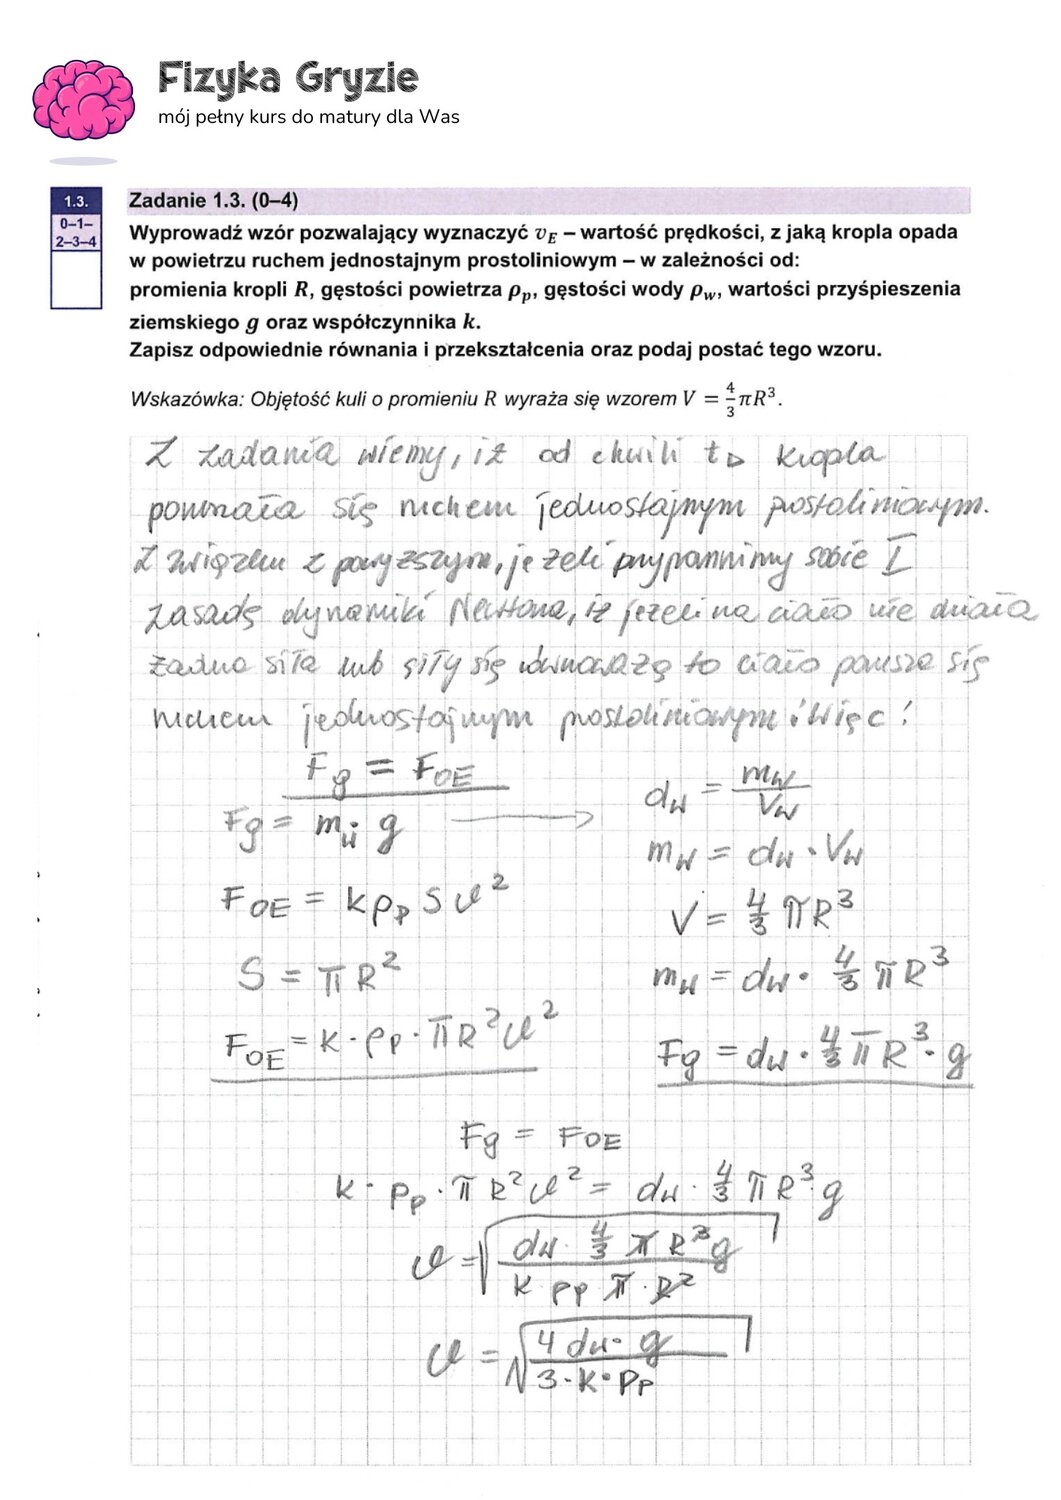 Fizyka Gryzie
mój pełny kurs do matury dla Was
1.3.
0–1–
2–3–4
Zadanie 1.3. (0–4)
Wyprowadź wzór pozwalający wyznaczyć v_E – wartość prędkości, z jaką kropla opada
w powietrzu ruchem jednostajnym prostoliniowym – w zależności od:
promienia kropli R, gęstości powietrza ρ_p, gęstości wody ρ_w, wartości przyśpieszenia
ziemskiego g oraz współczynnika k.
Zapisz odpowiednie równania i przekształcenia oraz podaj postać tego wzoru.
Wskazówka: Objętość kuli o promieniu R wyraża się wzorem V = 4/3 πR³.
Z zadania wiemy, iż od chwili t_D kropla
poruszała się ruchem jednostajnym prostoliniowym.
Z związku z powyższym, jeżeli przypomnimy sobie I
zasadę dynamiki Newtona, iż jeżeli na ciało nie działa
żadna siła lub siły się równoważą to ciało porusza się
ruchem jednostajnym prostoliniowym i więc :
F_g = F_OE
F_g = m_w g →
F_OE = kρ_p S v²
S = πR²
F_OE = k · ρ_p · πR² v²
d_w = m_w / V_w
m_w = d_w · V_w
V = 4/3 πR³
m_w = d_w · 4/3 πR³
F_g = d_w · 4/3 πR³ · g
F_g = F_OE
k · ρ_p · πR² v² = d_w · 4/3 πR³ g
v = √(d_w · 4/3 πR³ g / k ρ_p π · R²)
v = √(4 d_w · g / 3 · k · ρ_p)